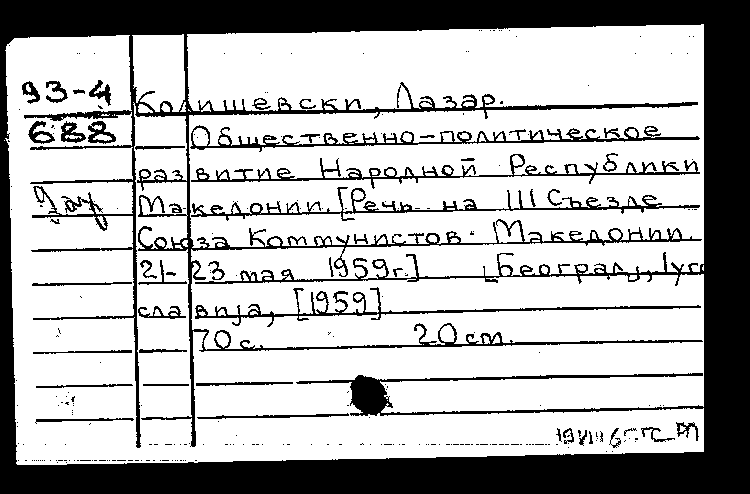 93-4
Колишевски, Лазар.
688
Общественно-политическое
развитие Народной Республики
Македонии. [Речь на III Съезде
Союза Коммунистов Македонии.
21-23 мая 1959г.] [Београд], Југо
славија, [1959]
70 с. 20 cm.